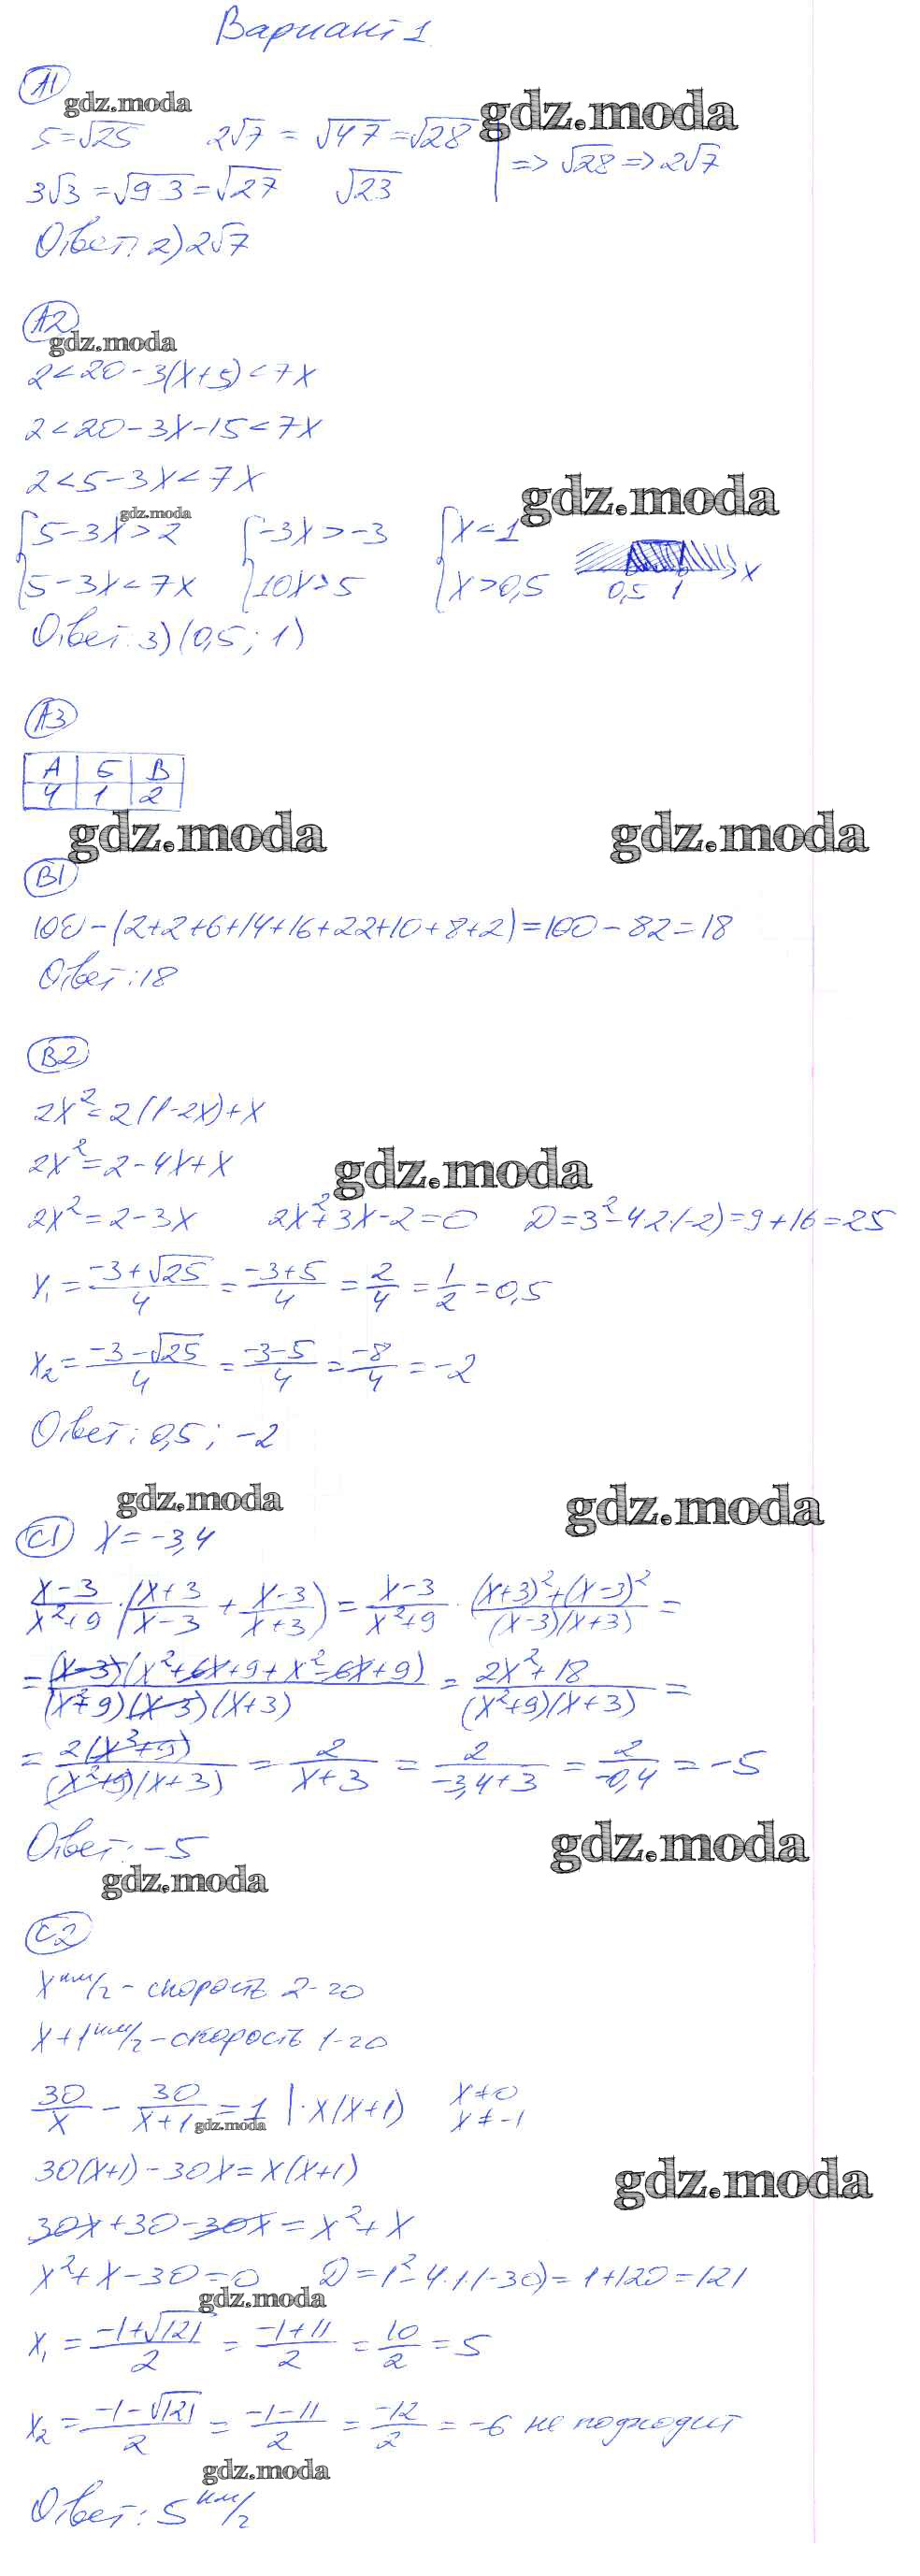 Вариант 1
А1
gdz.moda
gdz.moda
5=√25 2√7 = √4·7=√28
3√3 =√9·3=√27 √23 => √28 => 2√7
Ответ: 2) 2√7
А2
gdz.moda
2<20-3(x+5)<7x
2<20-3x-15<7x
2<5-3x<7x
gdz.moda
gdz.moda
{5-3x>2 {-3x>-3 {x<1
{5-3x<7x {10x>5 {x>0,5 0,5 1 x
Ответ: 3) (0,5; 1)
А3
А Б В
4 1 2
gdz.moda gdz.moda
В1
100-(2+2+6+14+16+22+10+8+2)=100-82=18
Ответ: 18
В2
2x²=2(1-2x)+x
2x²=2-4x+x
gdz.moda
2x²=2-3x 2x²+3x-2=0 D=3²-4·2·(-2)=9+16=25
x₁=(-3+√25)/4=(-3+5)/4=2/4=1/2=0,5
x₂=(-3-√25)/4=(-3-5)/4=-8/4=-2
Ответ: 0,5; -2
gdz.moda gdz.moda
С1 x=-3,4
(x-3)/(x²+9)·((x+3)/(x-3)+(x-3)/(x+3))=(x-3)/(x²+9)·((x+3)²+(x-3)²)/((x-3)(x+3))=
=((x-3)(x²+6x+9+x²-6x+9))/((x²+9)(x-3)(x+3))=(2x²+18)/((x²+9)(x+3))=
=(2(x²+9))/((x²+9)(x+3))=2/(x+3)=2/(-3,4+3)=2/(-0,4)=-5
Ответ: -5
gdz.moda
gdz.moda
С2
x км/ч - скорость 2-го
x+1 км/ч - скорость 1-го
30/x - 30/(x+1)=1 |·x(x+1) x≠0
x≠-1
gdz.moda
30(x+1)-30x=x(x+1)
gdz.moda
30x+30-30x=x²+x
x²+x-30=0 D=1²-4·1·(-30)=1+120=121
gdz.moda
x₁=(-1+√121)/2=(-1+11)/2=10/2=5
x₂=(-1-√121)/2=(-1-11)/2=-12/2=-6 не подходит
gdz.moda
Ответ: 5 км/ч